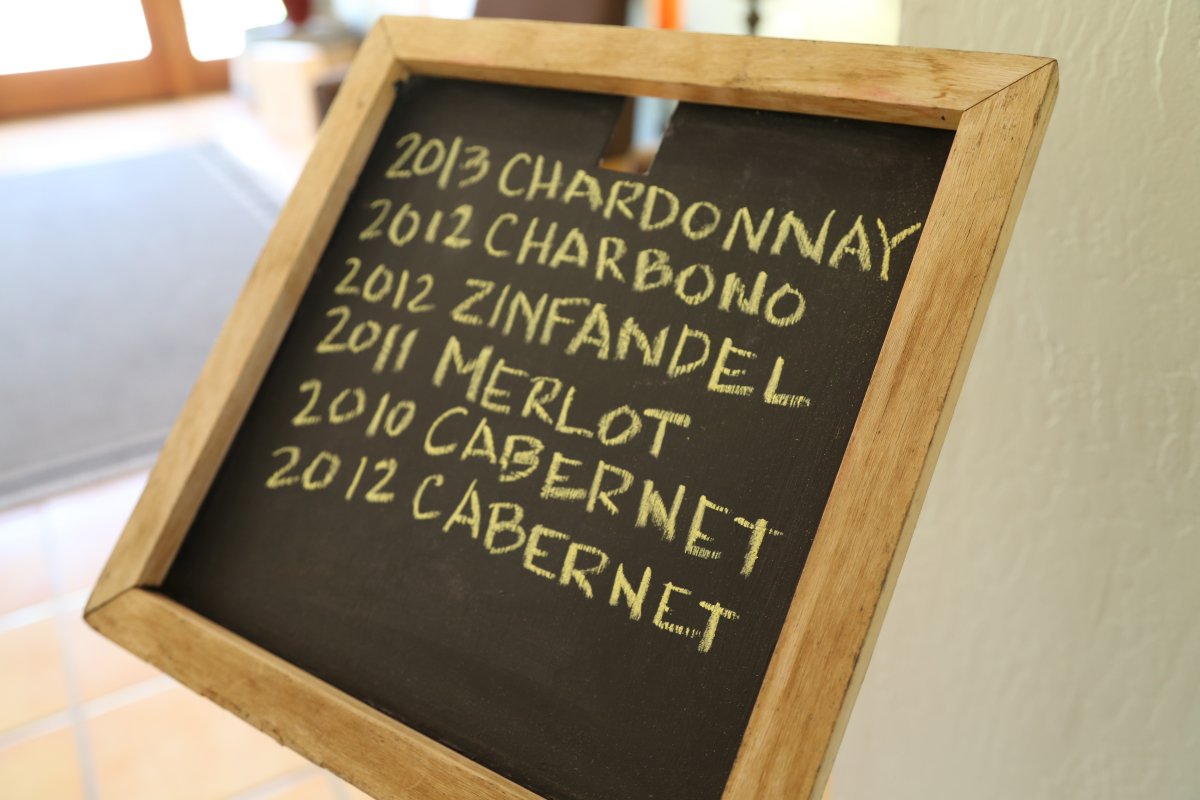 2013 CHARDONNAY
2012 CHARBONO
2012 ZINFANDEL
2011 MERLOT
2010 CABERNET
2012 CABERNET